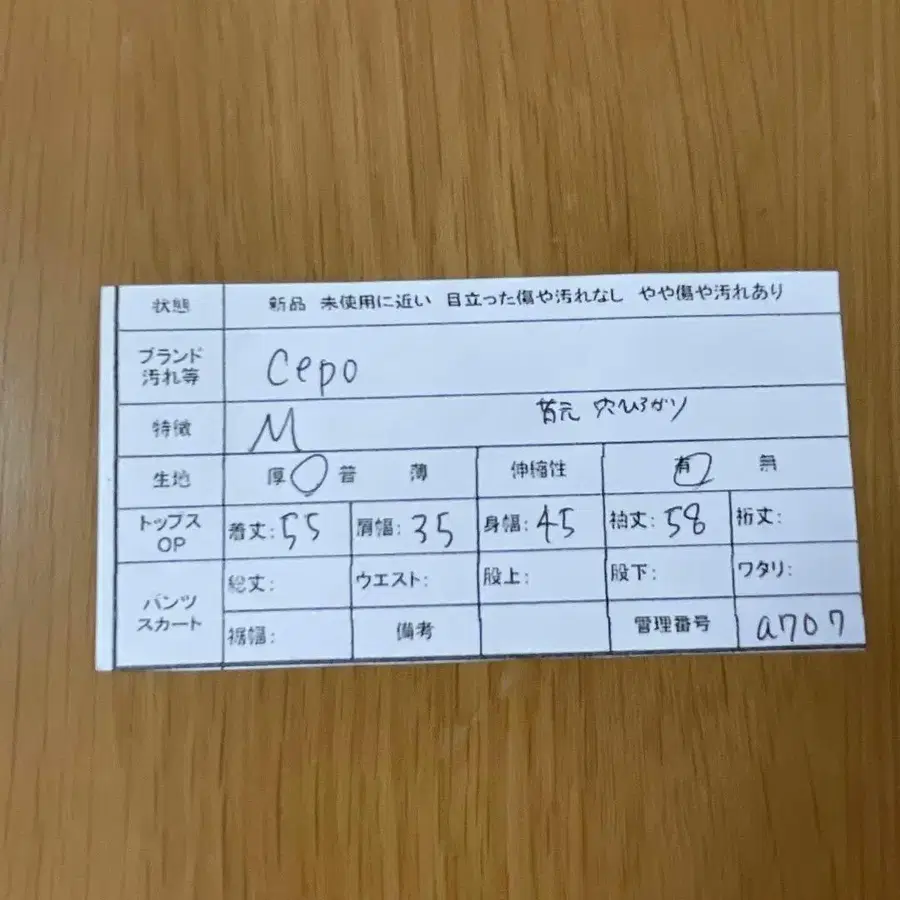 状態 新品 未使用に近い 目立った傷や汚れなし やや傷や汚れあり
ブランド
汚れ等 cepo
特徴 M 首元 穴ひろがり
生地 厚 普 薄 伸縮性 有 無
トップス
OP 着丈:55 肩幅:35 身幅:45 袖丈:58 裄丈:
パンツ
スカート 総丈: ウエスト: 股上: 股下: ワタリ:
裾幅: 備考 管理番号 a707